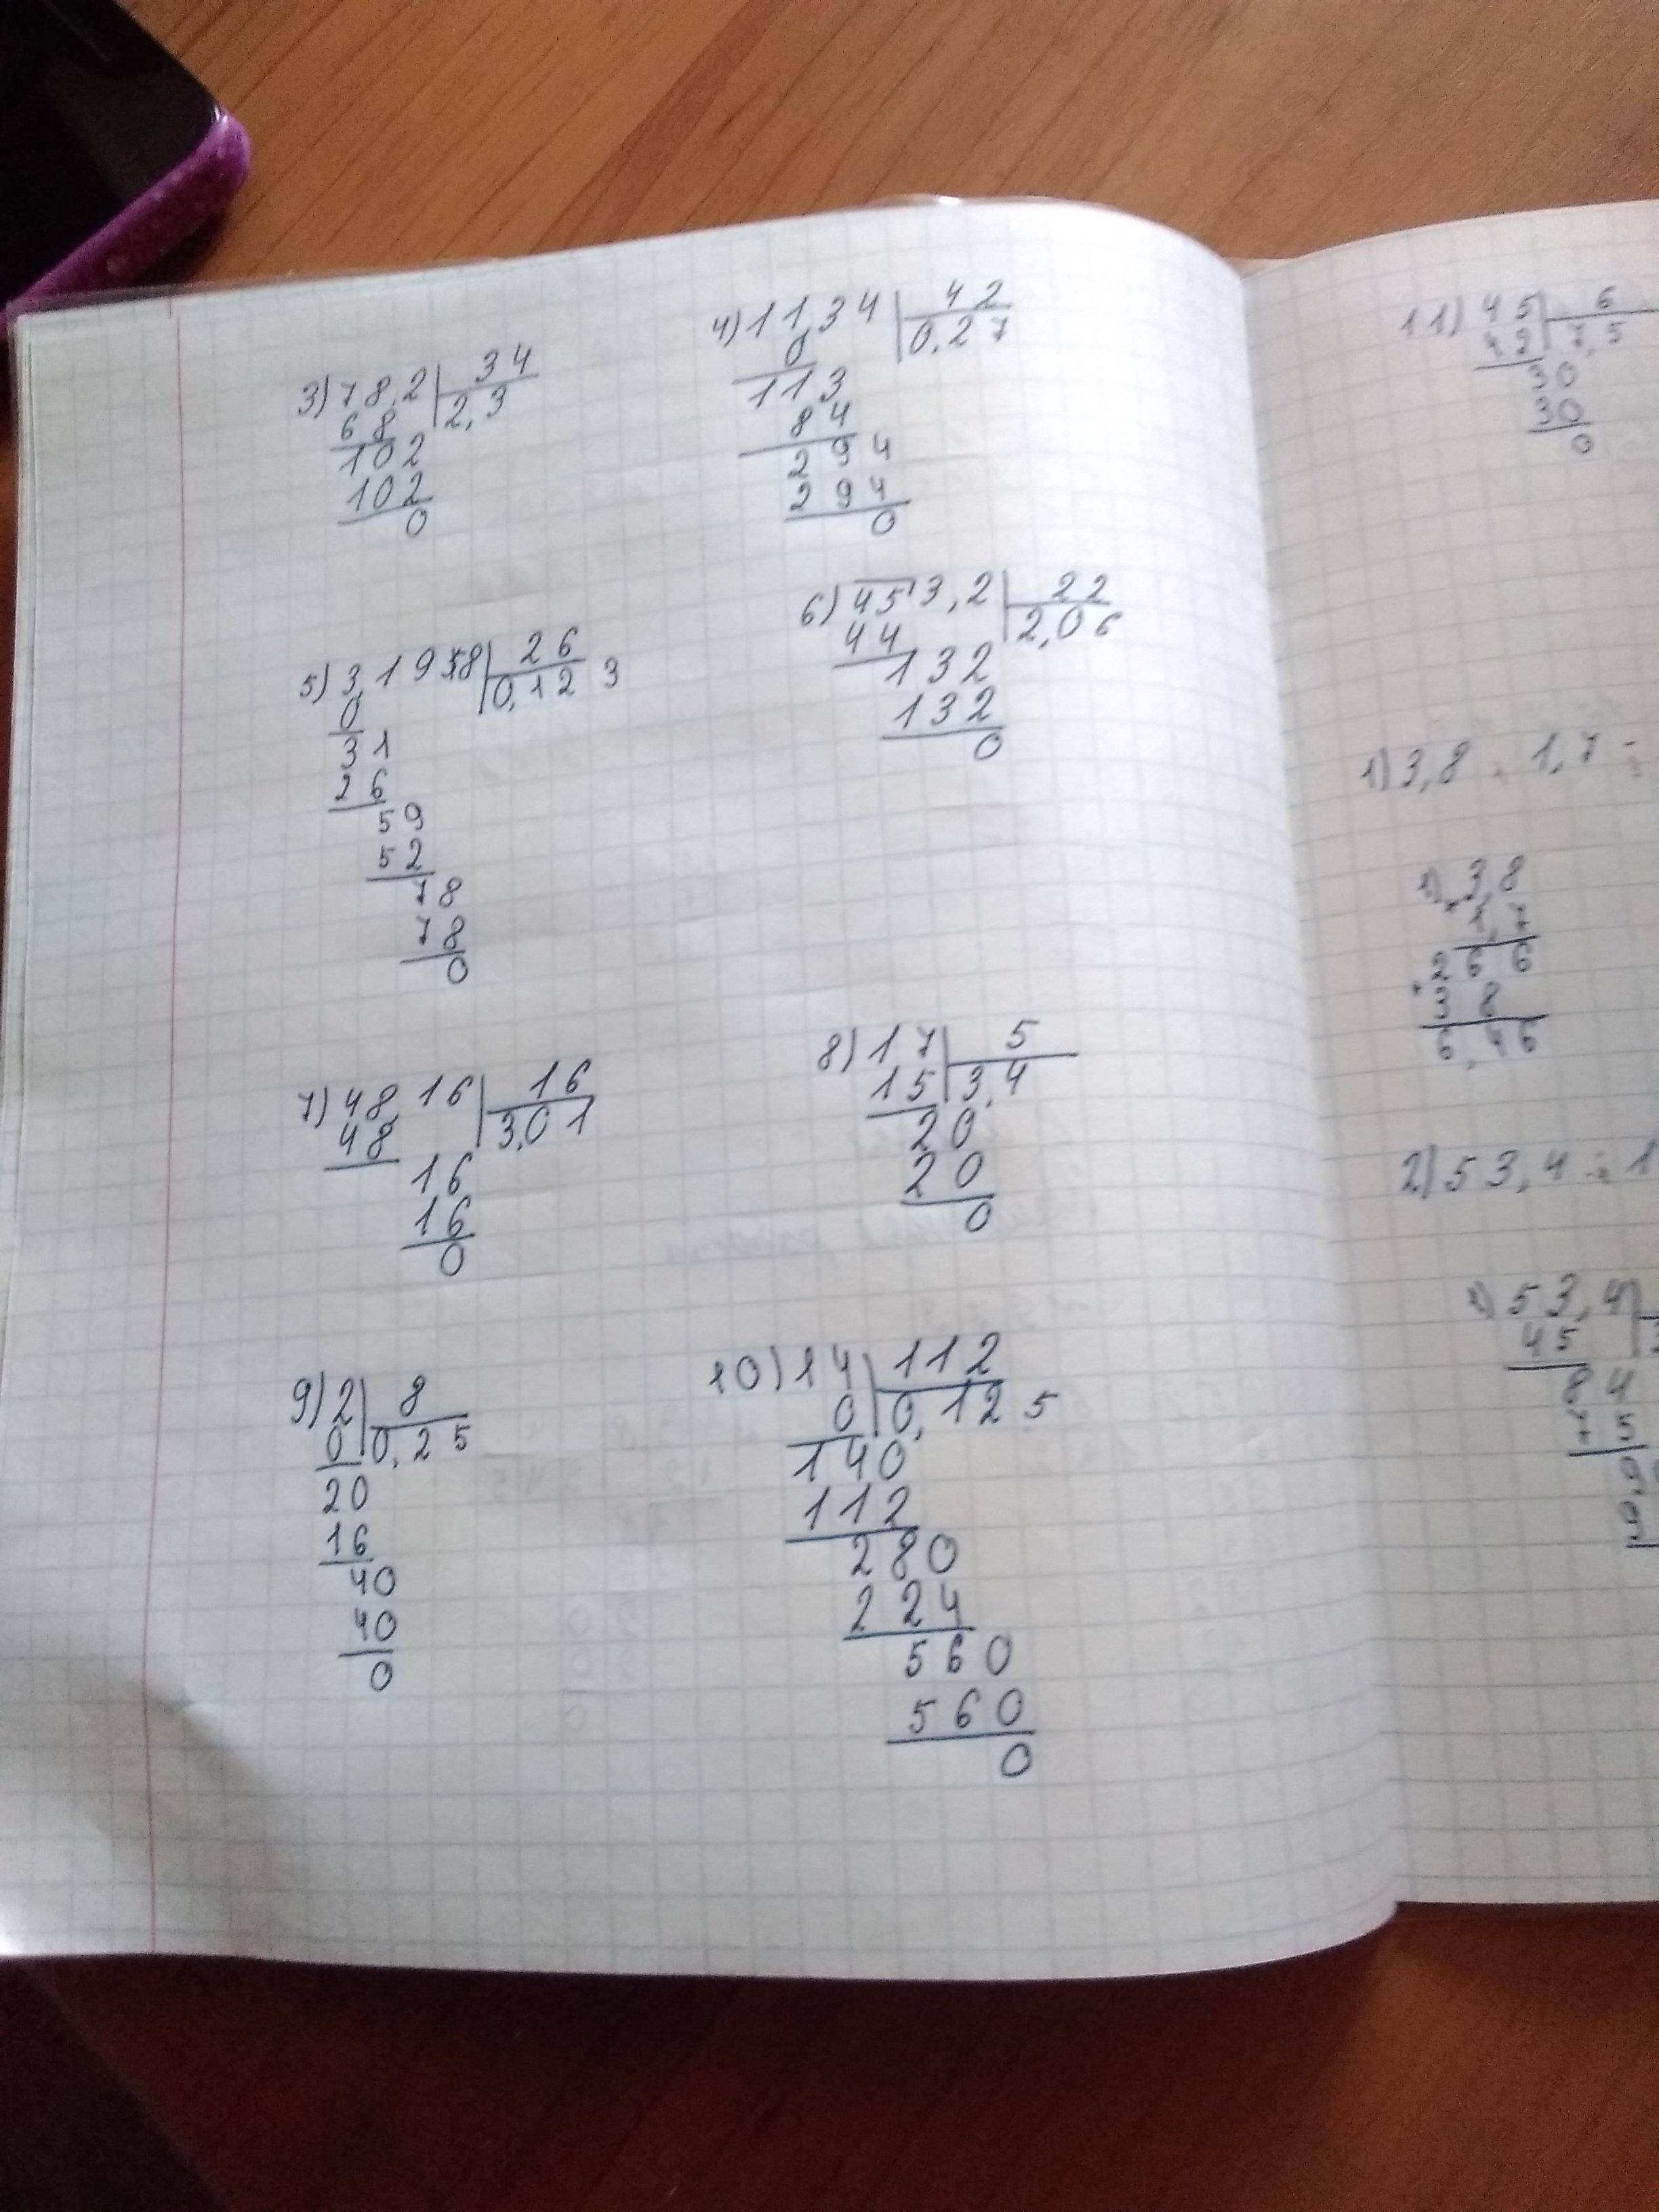 3) 78,2 | 34
68 | 2,3
102
102
0
4) 11,34 | 42
0 | 0,27
113
84
294
294
0
5) 3,1958 | 26
0 | 0,123
31
26
59
52
78
78
0
6) 453,2 | 22
44 | 2,06
132
132
0
7) 48,16 | 16
48 | 3,01
16
16
0
8) 17 | 5
15 | 3,4
20
20
0
9) 2 | 8
0 | 0,25
20
16
40
40
0
10) 14 | 112
0 | 0,125
140
112
280
224
560
560
0
11) 45 | 6
42 | 7,5
30
30
0
1) 3,8 · 1,7 =
3,8
1,7
266
38
6,46
2) 53,4 : 1
53,4
45
84
75
9
9